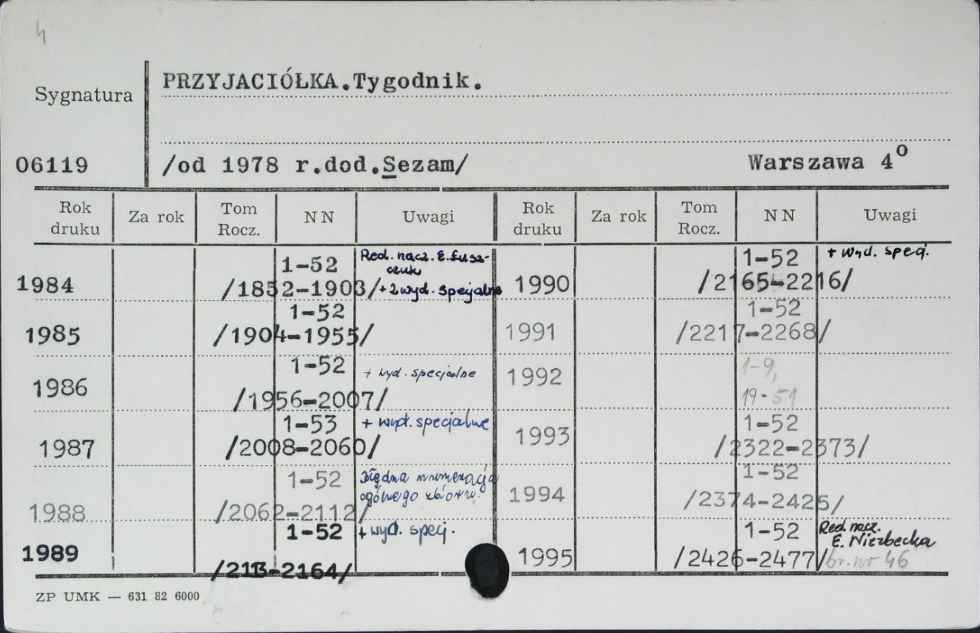 4
PRZYJACIÓŁKA.Tygodnik.
Sygnatura
06119 /od 1978 r.dod.Sezam/ Warszawa 4º
Rok druku Za rok Tom Rocz. NN Uwagi Rok druku Za rok Tom Rocz. NN Uwagi
1984 1-52 /1852-1903/ Red. nacz. E. Łusz-
czuk
+2 wyd. specjalne
1990 1-52 /2165-2216/ + wyd. specj.
1985 1-52 /1904-1955/
1991 1-52 /2217-2268/
1986 1-52 /1956-2007/ + wyd. specjalne
1992 1-9,
19-51
1987 1-53 /2008-2060/ + wyd. specjalne
1993 1-52 /2322-2373/
1988 1-52 /2062-2112/ Błędna numeracja
ogólnego zbioru.
1994 1-52 /2374-2425/
1989 1-52 /2113-2164/ + wyd. specj.
1995 1-52 /2426-2477/ Red. nacz.
E. Niezbecka
br. nr 46
ZP UMK — 631 82 6000